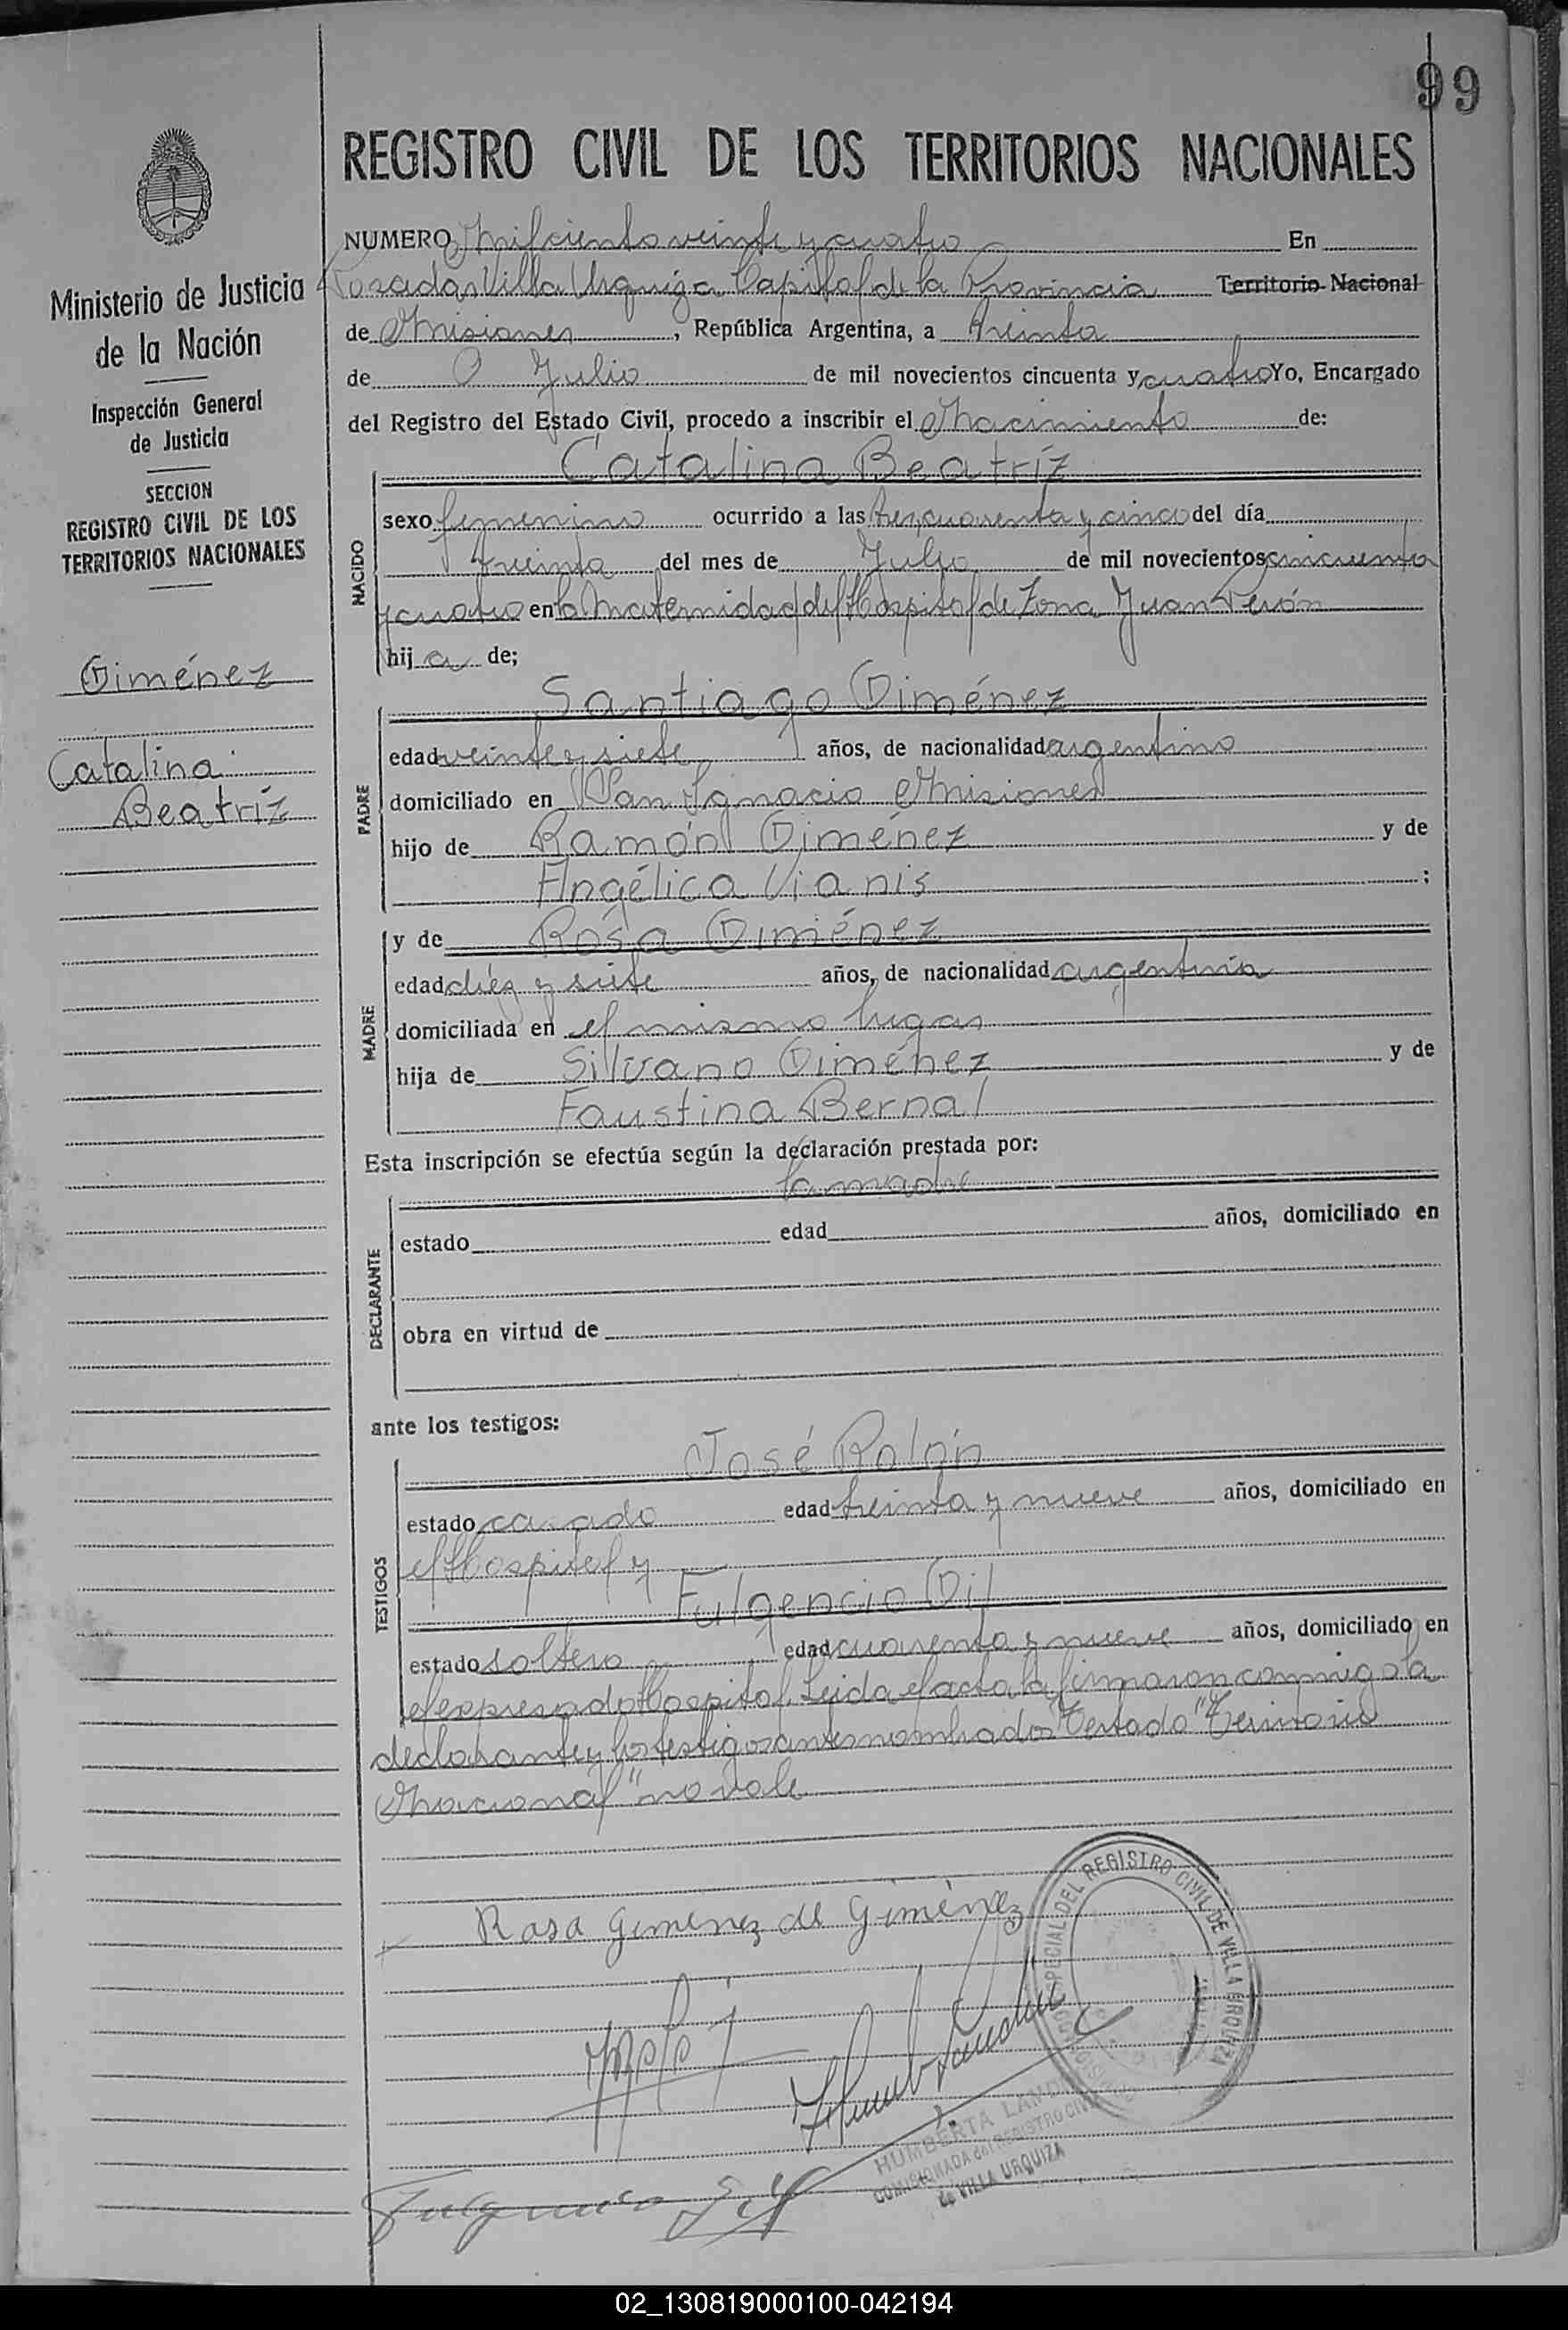 99
REGISTRO CIVIL DE LOS TERRITORIOS NACIONALES
NUMERO Mil ciento veinte y cuatro En
Posadas Villa Urquiza Capital de la Provincia Territorio Nacional
de Misiones, República Argentina, a treinta
de Julio de mil novecientos cincuenta y cuatro Yo, Encargado
del Registro del Estado Civil, procedo a inscribir el Nacimiento de:
Catalina Beatríz
NACIDO
sexo femenino ocurrido a las tres, cuarenta y cinco del día
treinta del mes de Julio de mil novecientos cincuenta
y cuatro en la Maternidad del Hospital de Zona Juan Perón
hij a de;
Santiago Giménez
PADRE
edad veinte y siete años, de nacionalidad argentino
domiciliado en San Ignacio Misiones
hijo de Ramón Giménez y de
Angélica Vianis ;
MADRE
y de Rosa Giménez
edad diéz y siete años, de nacionalidad argentina
domiciliada en el mismo lugar
hija de Silvano Giménez y de
Faustina Bernal
Esta inscripción se efectúa según la declaración prestada por:
la madre
DECLARANTE
estado edad años, domiciliado en
obra en virtud de
ante los testigos:
José Rolón
TESTIGOS
estado casado edad treinta y nueve años, domiciliado en
el Hospital y
Fulgencio Gil
estado soltero edad cuarenta y nueve años, domiciliado en
el expresado Hospital. Leida el acta la firmaron conmigo la
declarante y los testigos antes nombrados Testado "Territorio
Nacional" no vale
Rosa Gimenez de Giménez
REGISTRO CIVIL DE VILLA URQUIZA
HUMBERTA
COMISIONADA del REGISTRO CIVIL
de VILLA URQUIZA
Fulgencio Gil
Ministerio de Justicia
de la Nación
Inspección General
de Justicia
SECCION
REGISTRO CIVIL DE LOS
TERRITORIOS NACIONALES
Giménez
Catalina
Beatríz
02_130819000100-042194